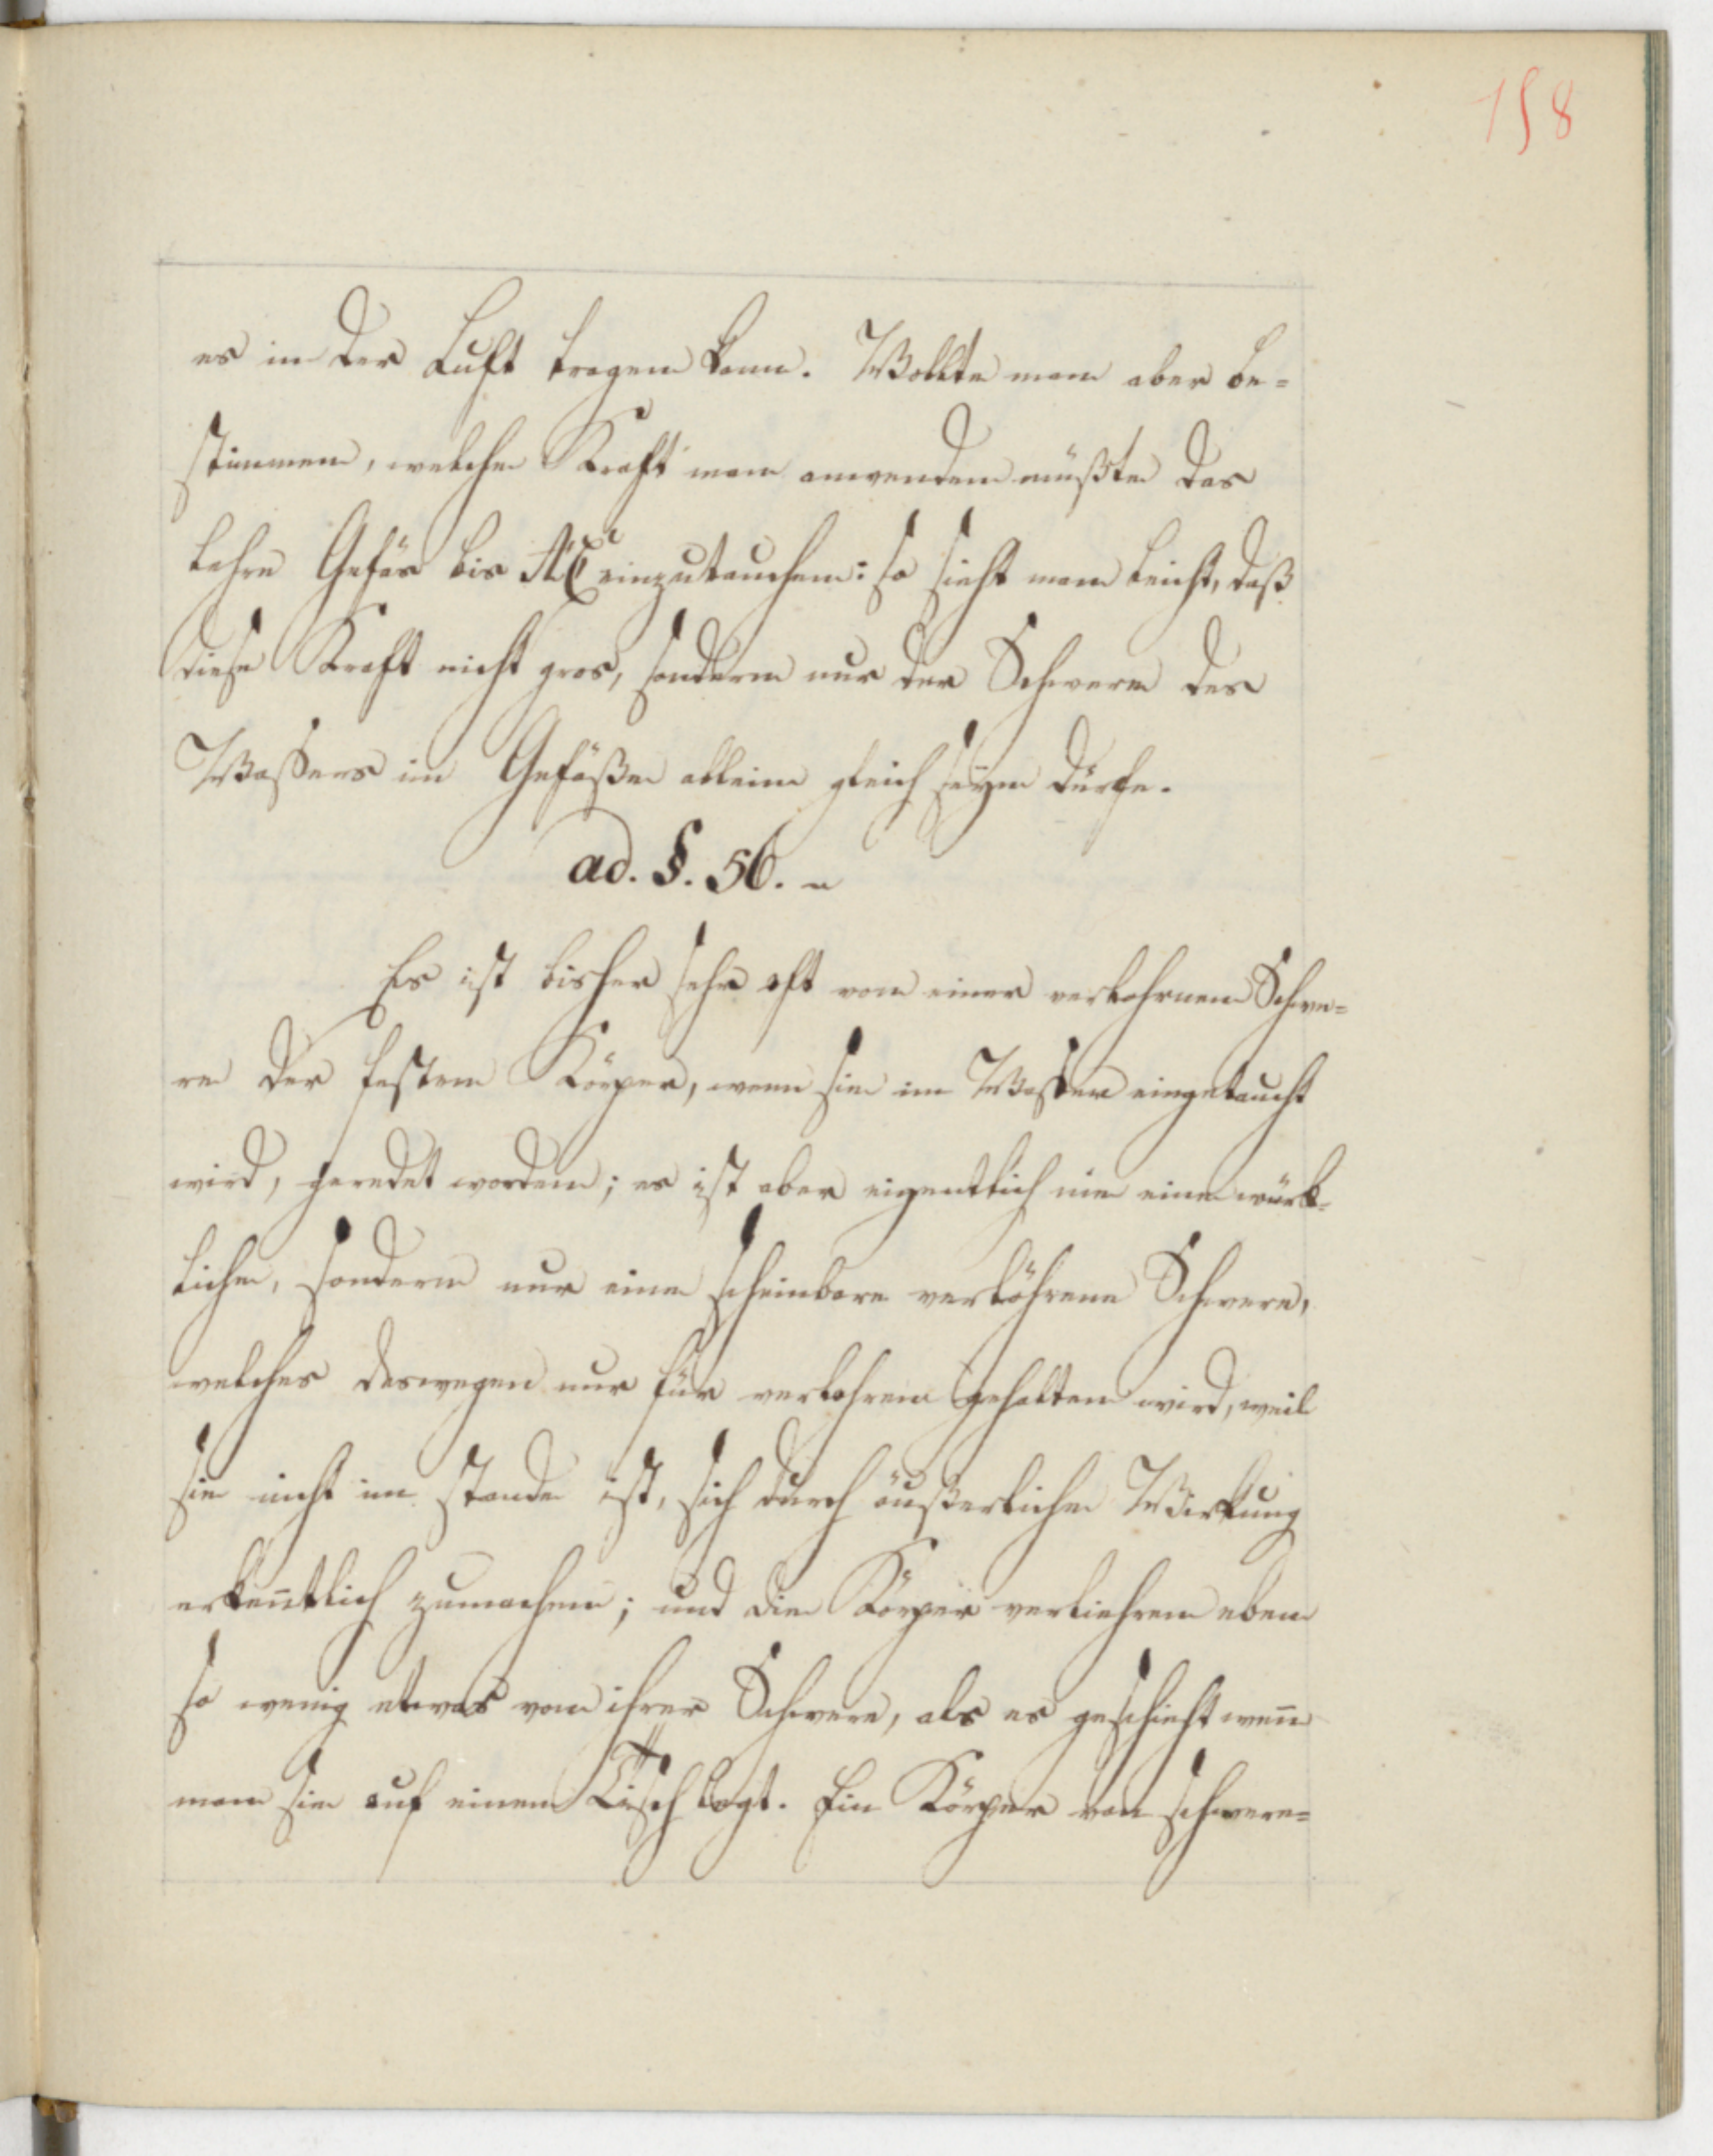 158
es in der Luft tragen kann. Wollte man aber be=
stimmen, welche Kraft man anwenden müßte das
lehre Gefäs bis AC einzutauchen: so sieht man leicht, daß
diese Kraft nicht gros, sondern nur der Schwere des
Waßers im Gefäße allein gleich seyn dürfe.
ad. §. 56.
Es ist bisher sehr oft von einer verlohrnen Schwe=
re der festen Körper, wenn sie im Waßer eingetaucht
wird, geredet worden; es ist aber eigentlich nie eine würk=
liche, sondern nur eine scheinbare verlohrene Schwere,
welches deswegen nur für verlohren gehalten wird, weil
sie nicht im stande ist, sich durch äußerliche Wirkung
erkentlich zumachen; und die Körper verliehren eben
so wenig etwas von ihrer Schwere, als es geschieht wen̄
man sie auf einen Tisch legt. Ein Körper von schwere=